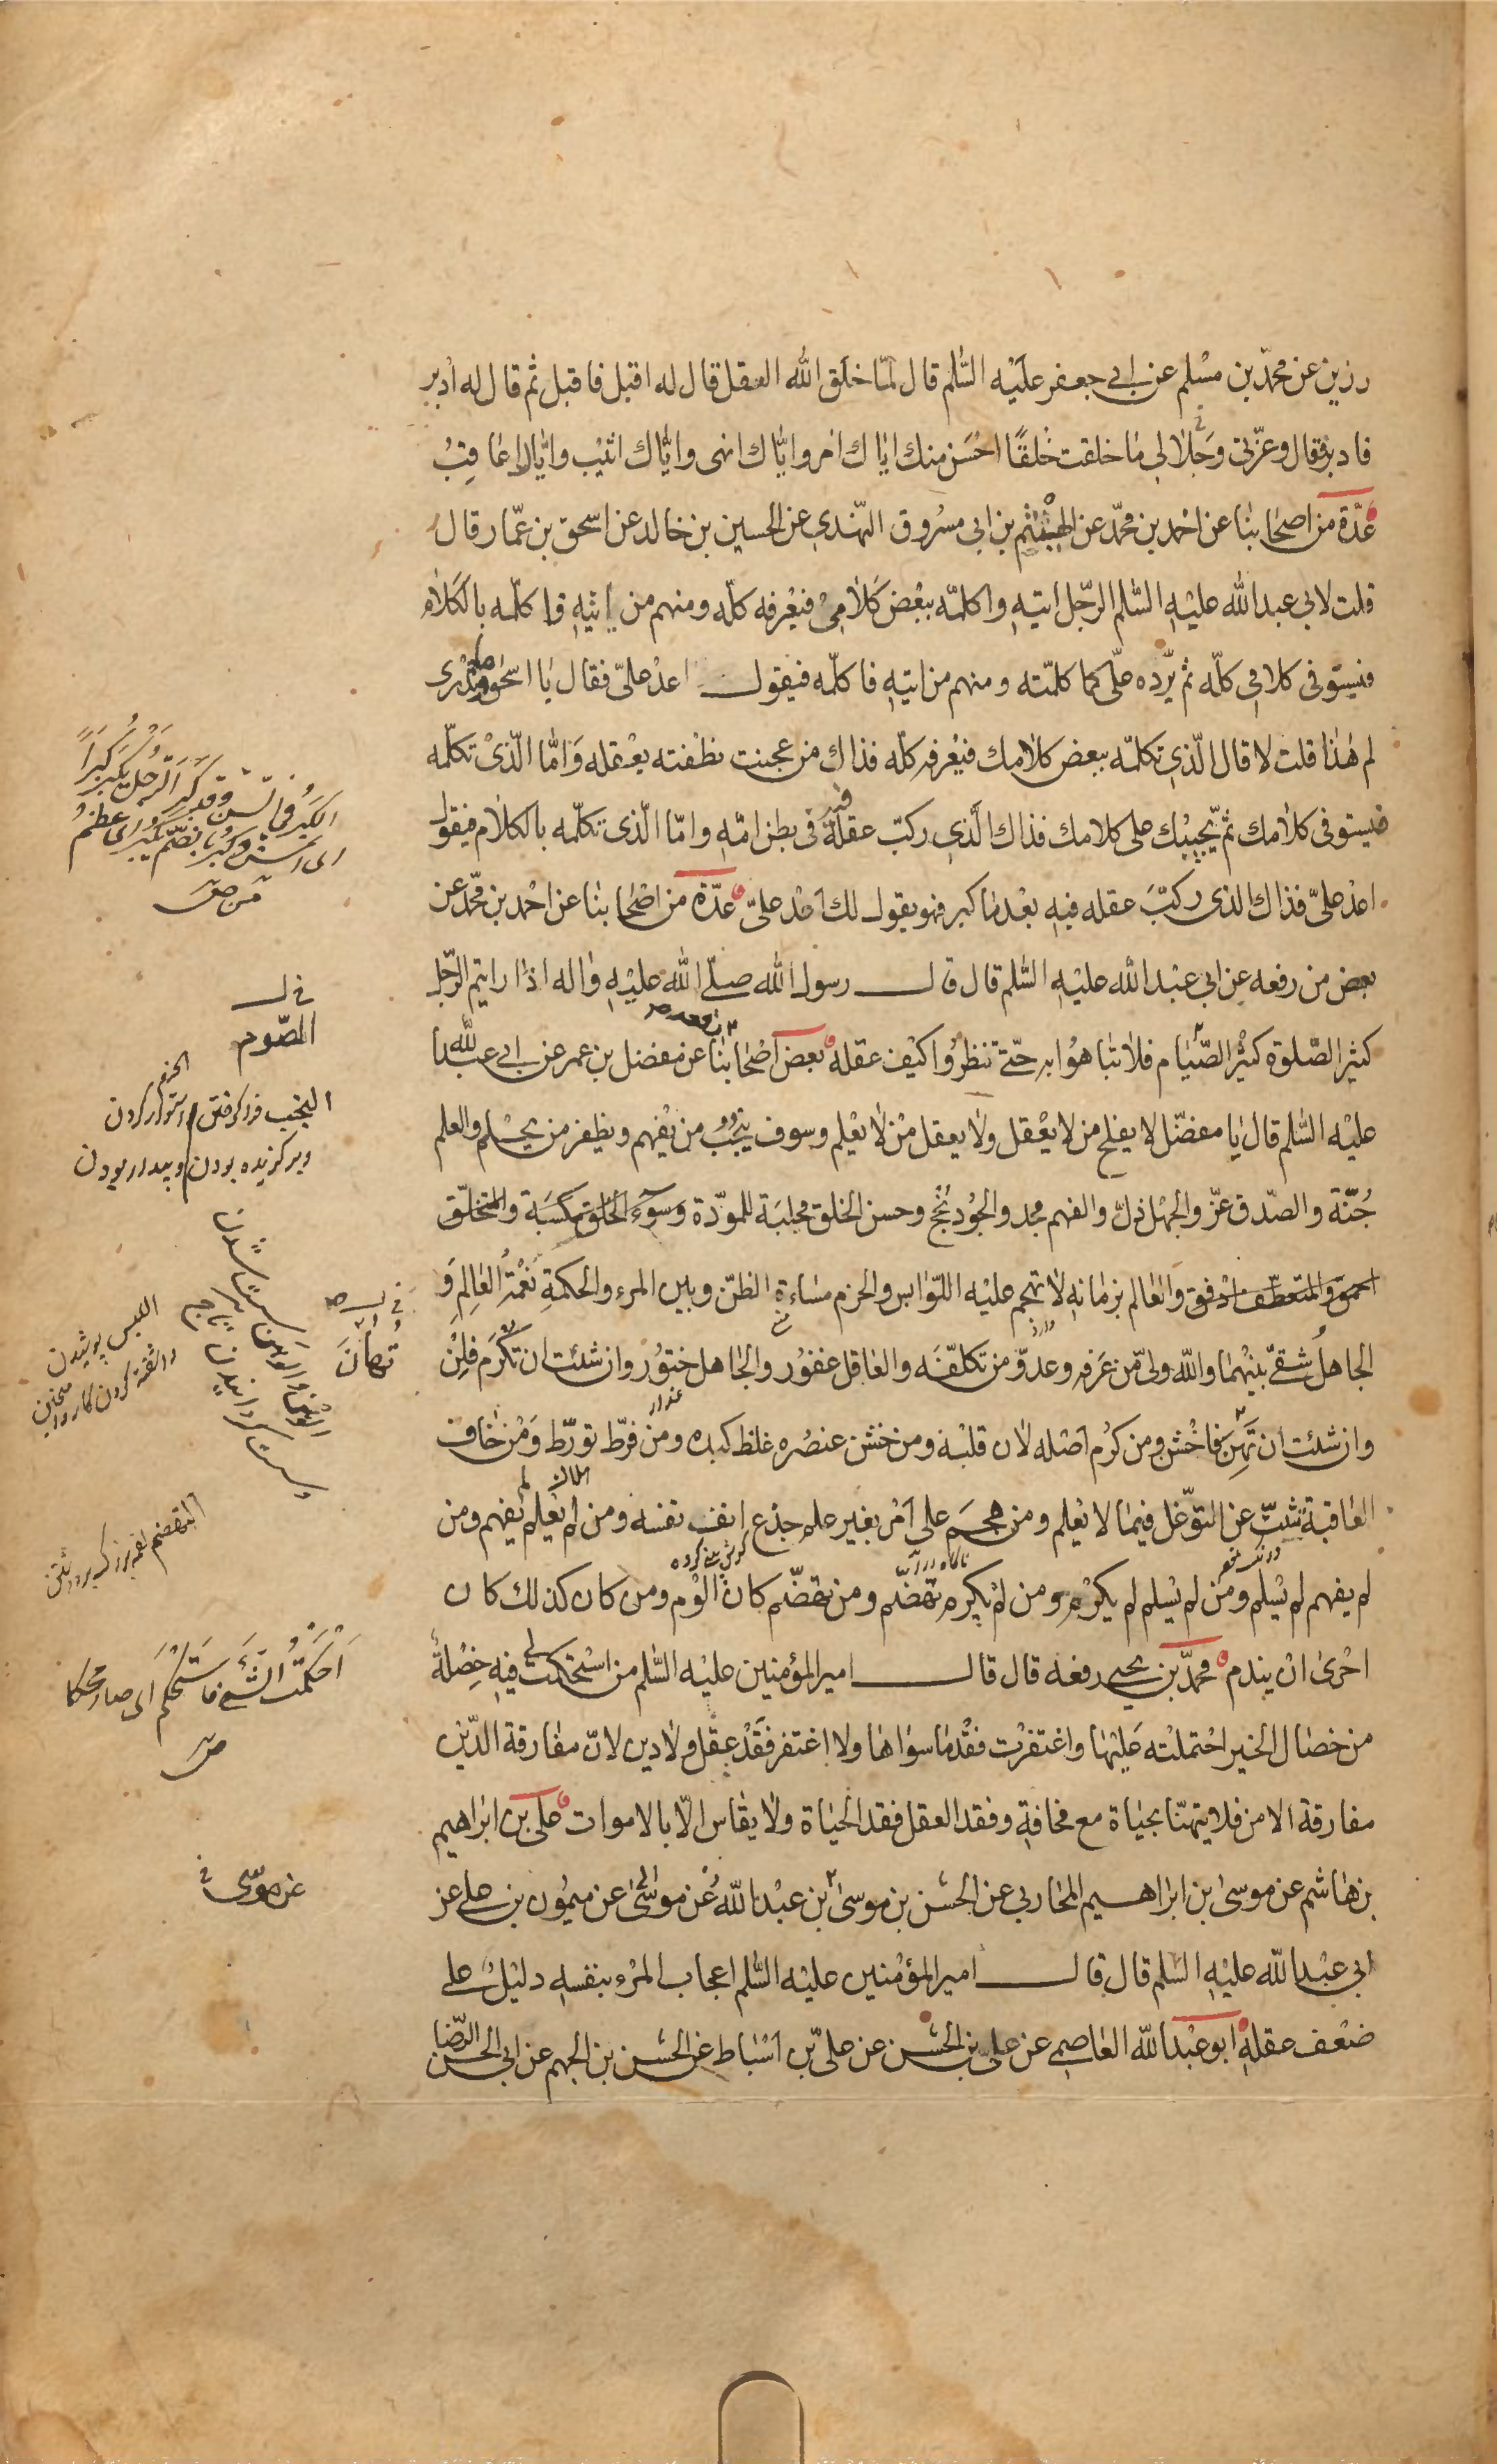 رزين عن محمّد بن مسْلم عن ابي جعفر عليْه السّلم قال لمّا خلق الله العقل قال له اقبل فاقبل ثم قال له ادبر
فادبر فقال وعزّتي وجَلالي ما خلقت خلقًا احْسَن منك ايّاك امر وايّاك انهى وايّاك اثيْب وايّاك اعاقِبُ
عدّة من اصحابنا عن احمد بن محمّد عن الهيْثم بن ابي مسْروق النّهدي عن الحسين بن خالد عن اسحق بن عمّار قال
قلت لابي عبدالله عليْهِ السّلم الرّجل اتيهِ واكلمّه ببعْض كلامِيْ فيَعْرفه كلّه ومنهم من اتيْهِ فاكلّمه بالكلام
فيستوفي كلامي كلّه ثم يردّه علّي كما كلمّته ومنهم من اتيهِ فاكلّمه فيقول اعدْ عليّ فقال يا اسحٰق وما تدْرى
لم هٰذا قلت لا قال الّذي تكلمّه ببعض كلامك فيعْرفه كلّه فذاك من عجنت نطْفته بعْقله وَامّا الّذىْ تكلّمه
فيستوفى كلامك ثمّ يجيبْك على كلامك فذاك الّذي ركبّ عقلهُ فيه في بطن امّهِ وامّا الّذى تكلّمه بالكلام فيقول
اعدْ عليّ فذاك الذى ركبّ عقله فيهِ بعْدما كبر فهو يقول لك اعدْ عليّ عدّة من اصْحابنا عن احْمد بن محمّد عن
بعض من رفعه عن ابي عبْدالله عليْهِ السّلم قال قال رسول الله صلّى الله عليْهِ واله اذا رايتم الرّجل
كثير الصّلوة كثيْر الصّيام فلا تباهُوا به حتّى تنظرُوا كيْف عقله بعض اصْحابنا رفعه عن مفضل بن عمر عن ابي عبدالله
عليْه السّلم قال يا مفضّل لا يفلح من لا يعْقل ولا يعقل منْ لا يعْلم وسوف ينْجُبُ من يفْهم ويظفر من يحْلم والعلم
جُنّة والصّدق عزّ والجهْل ذلّ والفهم مجد والجُود نُجْح وحسن الخلق مجلبَة للمودّة وسوْء الخلق مكسَبَة والمتخلّق
احمق والمتعطّف مرْفق والعالم بزمانهِ لا تهجم عليْه اللّوابس والحزم مساءة الظنّ وبين المرء والحكمةِ نعْمَة العالِمِ وَ
الجاهلُ شقىّ بيْنهما والله ولىّ من عَرفه وعدوّ من تكلّفَه والعاقل غفوْر والجاهل ختوُر وان شئت ان تكْرَم فلِنْ
وان شئت ان تهَن فاخْشنْ ومن كرُم اصْله لان قلبْه ومن خشن عنصُره غلظ كبده ومن فرّط تورّط وَمنْ خاف
العاقبة تثبتّ عن التّوغّل فيما لا يعْلم ومن هجَم على امْر بغير علم جذع انف نفسه ومن لم يعْلم لم يفهم ومن
لم يفهم لم يسْلم ومن لم يسْلم لم يكرُم ومن لمْ يكرم تهَضّم ومن تهضّم كان الوَم ومن كان كذلك كان
احْرىٰ انْ يندم محمّد بن يحيى رفعه قال قال امير المؤمنين عليْه السّلم من اسْتحكمت لي فيهِ خصْلة
من خصال الخير احْتملتْه عَليْها واغتفرْت فقْد ما سواها ولا اغتفر فقَدْ عقل ولا دين لانّ مفارقة الدّيْن
مفارقة الامن فلا يتهنّا بحياة مع مخافةٍ وفقد العقل فقد الحياة ولا يقاس الّا بالاموات علي بن ابراهيم
بن هاشم عن موسىٰ ابن ابراهيم المحاربي عن الحسَن بن موسىٰ بن عبْدالله عن موسٰى عن ميموُن بن على عن
ابي عبْدالله عليْهِ السّلم قال قال امير المؤمنين عليْه السّلم اعجاب المرْء بنفسهِ دليْلُ على
ضعْف عقلهِ ابو عبْدالله العاصمي عن عليّ بن الحسَن عن علىّ بن اسْباط عن الحسَن بن الجهم عن ابي الحسن الرّضا
الكبَر في السّن وقد كَبِرَ الرّجل يكبَر كِبَراً
اى اسن وكبُر بالضّمّ يكبُر اى عظم
في ل
الصّوم
وبرگزيده بودن وبيدار بودن
تُهانَ
اللبس پوشيدن
اَحْكمْتُ الشّىءَ فاسْتَحْكم اى صار محكما
عن موسى